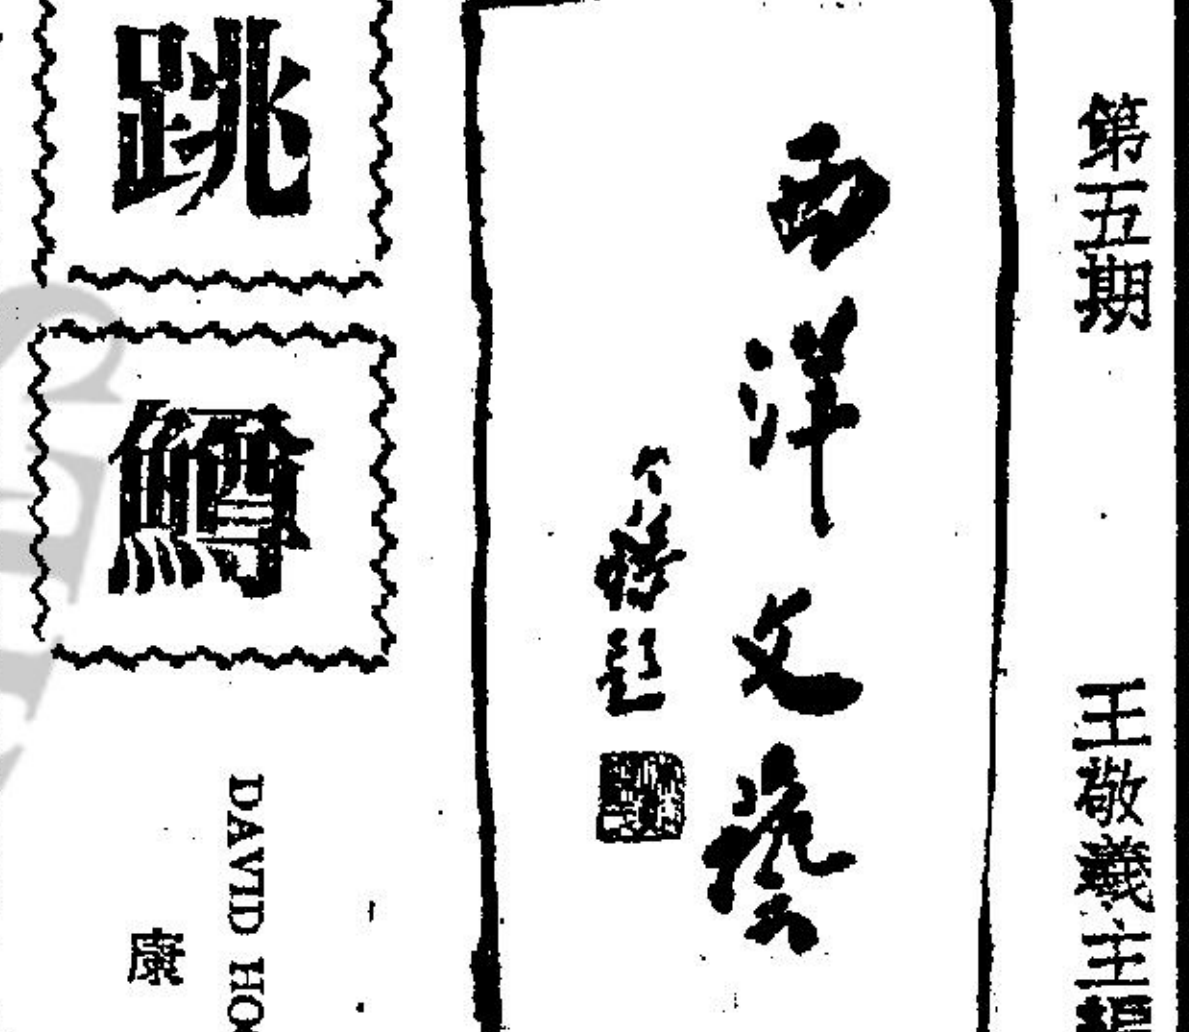 第五期 王敬羲主編
西洋文藝
題
跳鱒
DAVID HO
康